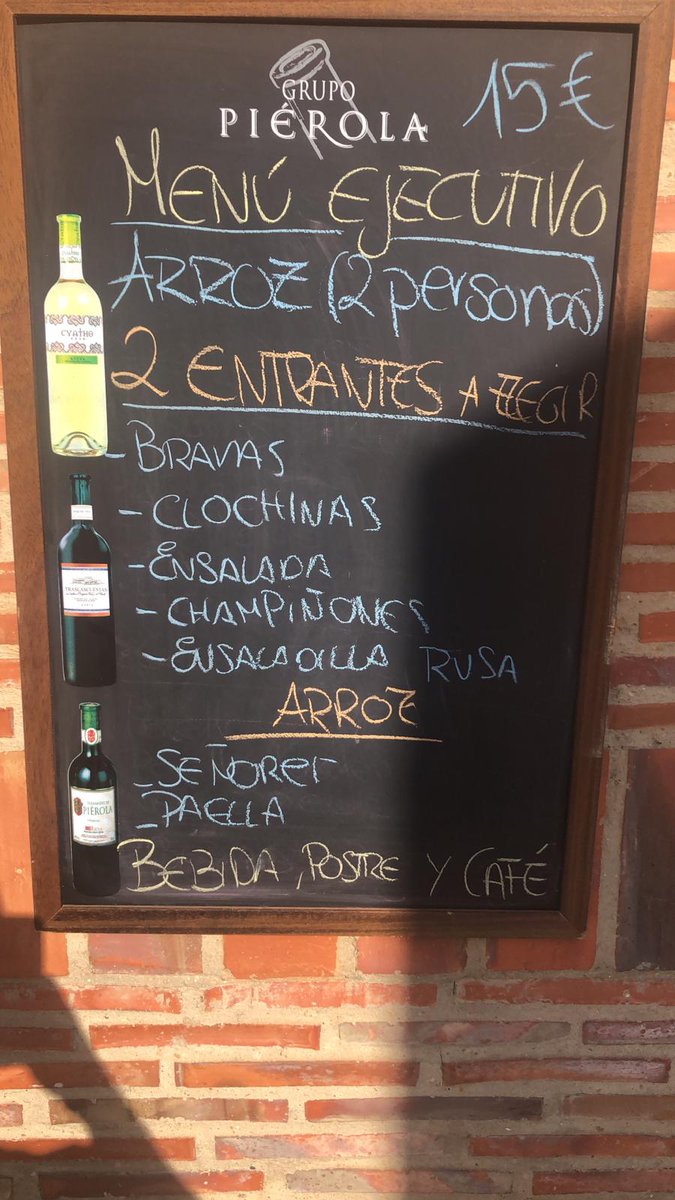 GRUPO
PIÉROLA
15€
MENÚ EJECUTIVO
ARROZ (2 personas)
2 ENTRANTES A ELEGIR
- BRAVAS
- CLOCHINAS
- ENSALADA
- CHAMPIÑONES
- ENSALADILLA RUSA
ARROZ
- SEÑORET
- PAELLA
BEBIDA, POSTRE Y CAFÉ
CYATHO
TRASLASCUESTAS
PIÉROLA